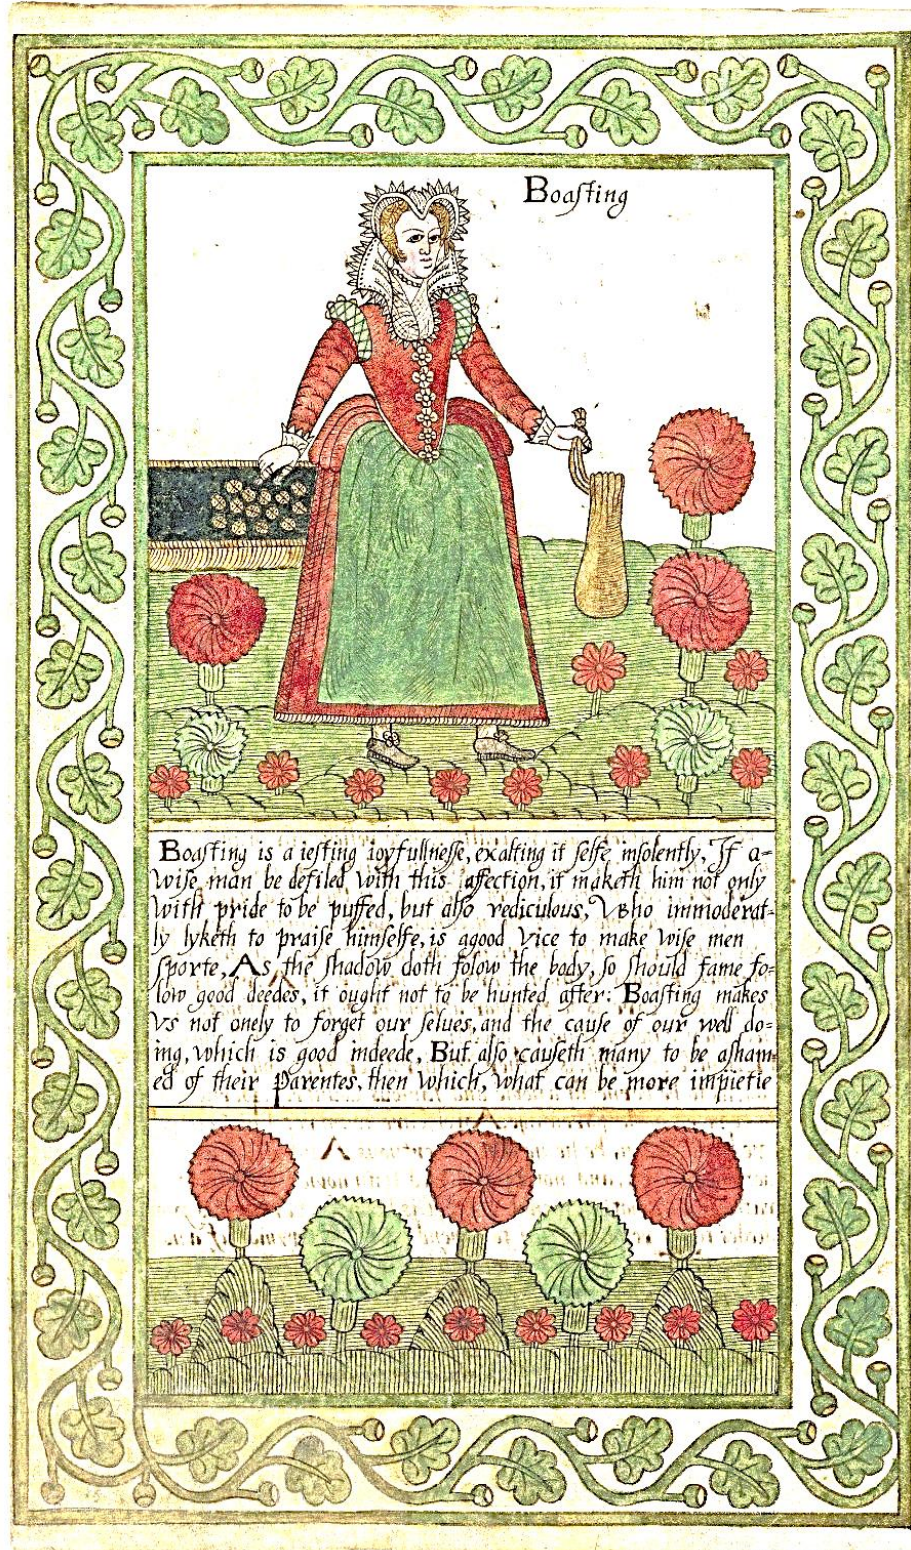 Boasting
Boasting is a iesting ioyfullnesse, exalting it selfe insolently, If a=
wise man be defiled with this affection, it maketh him not only
with pride to be puffed, but also rediculous, Who immoderat=
ly lyketh to praise himselfe, is agood vice to make wise men
sporte, As the shadow doth folow the body, so should fame fo=
low good deedes, it ought not to be hunted after: Boasting makes
vs not onely to forget our selues, and the cause of our well do=
ing, which is good indeede, But also causeth many to be asham=
ed of their Parentes, then which, what can be more impietie